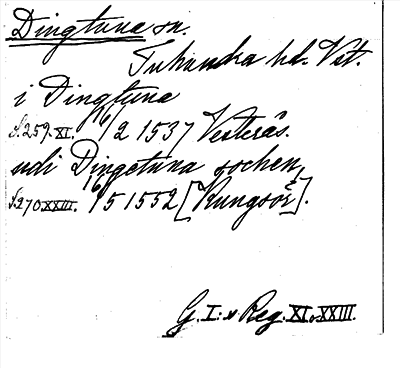 Dingtuna sn.
Tuhundra hd. Vst.
i Dingtuna
s. 259. XI. 16/2 1537 Vesterås.
udi Dingetuna sochen,
s. 270. XXIII. 16/5 1552 [Kungsör].
G. I:s Reg. XI, XXIII.